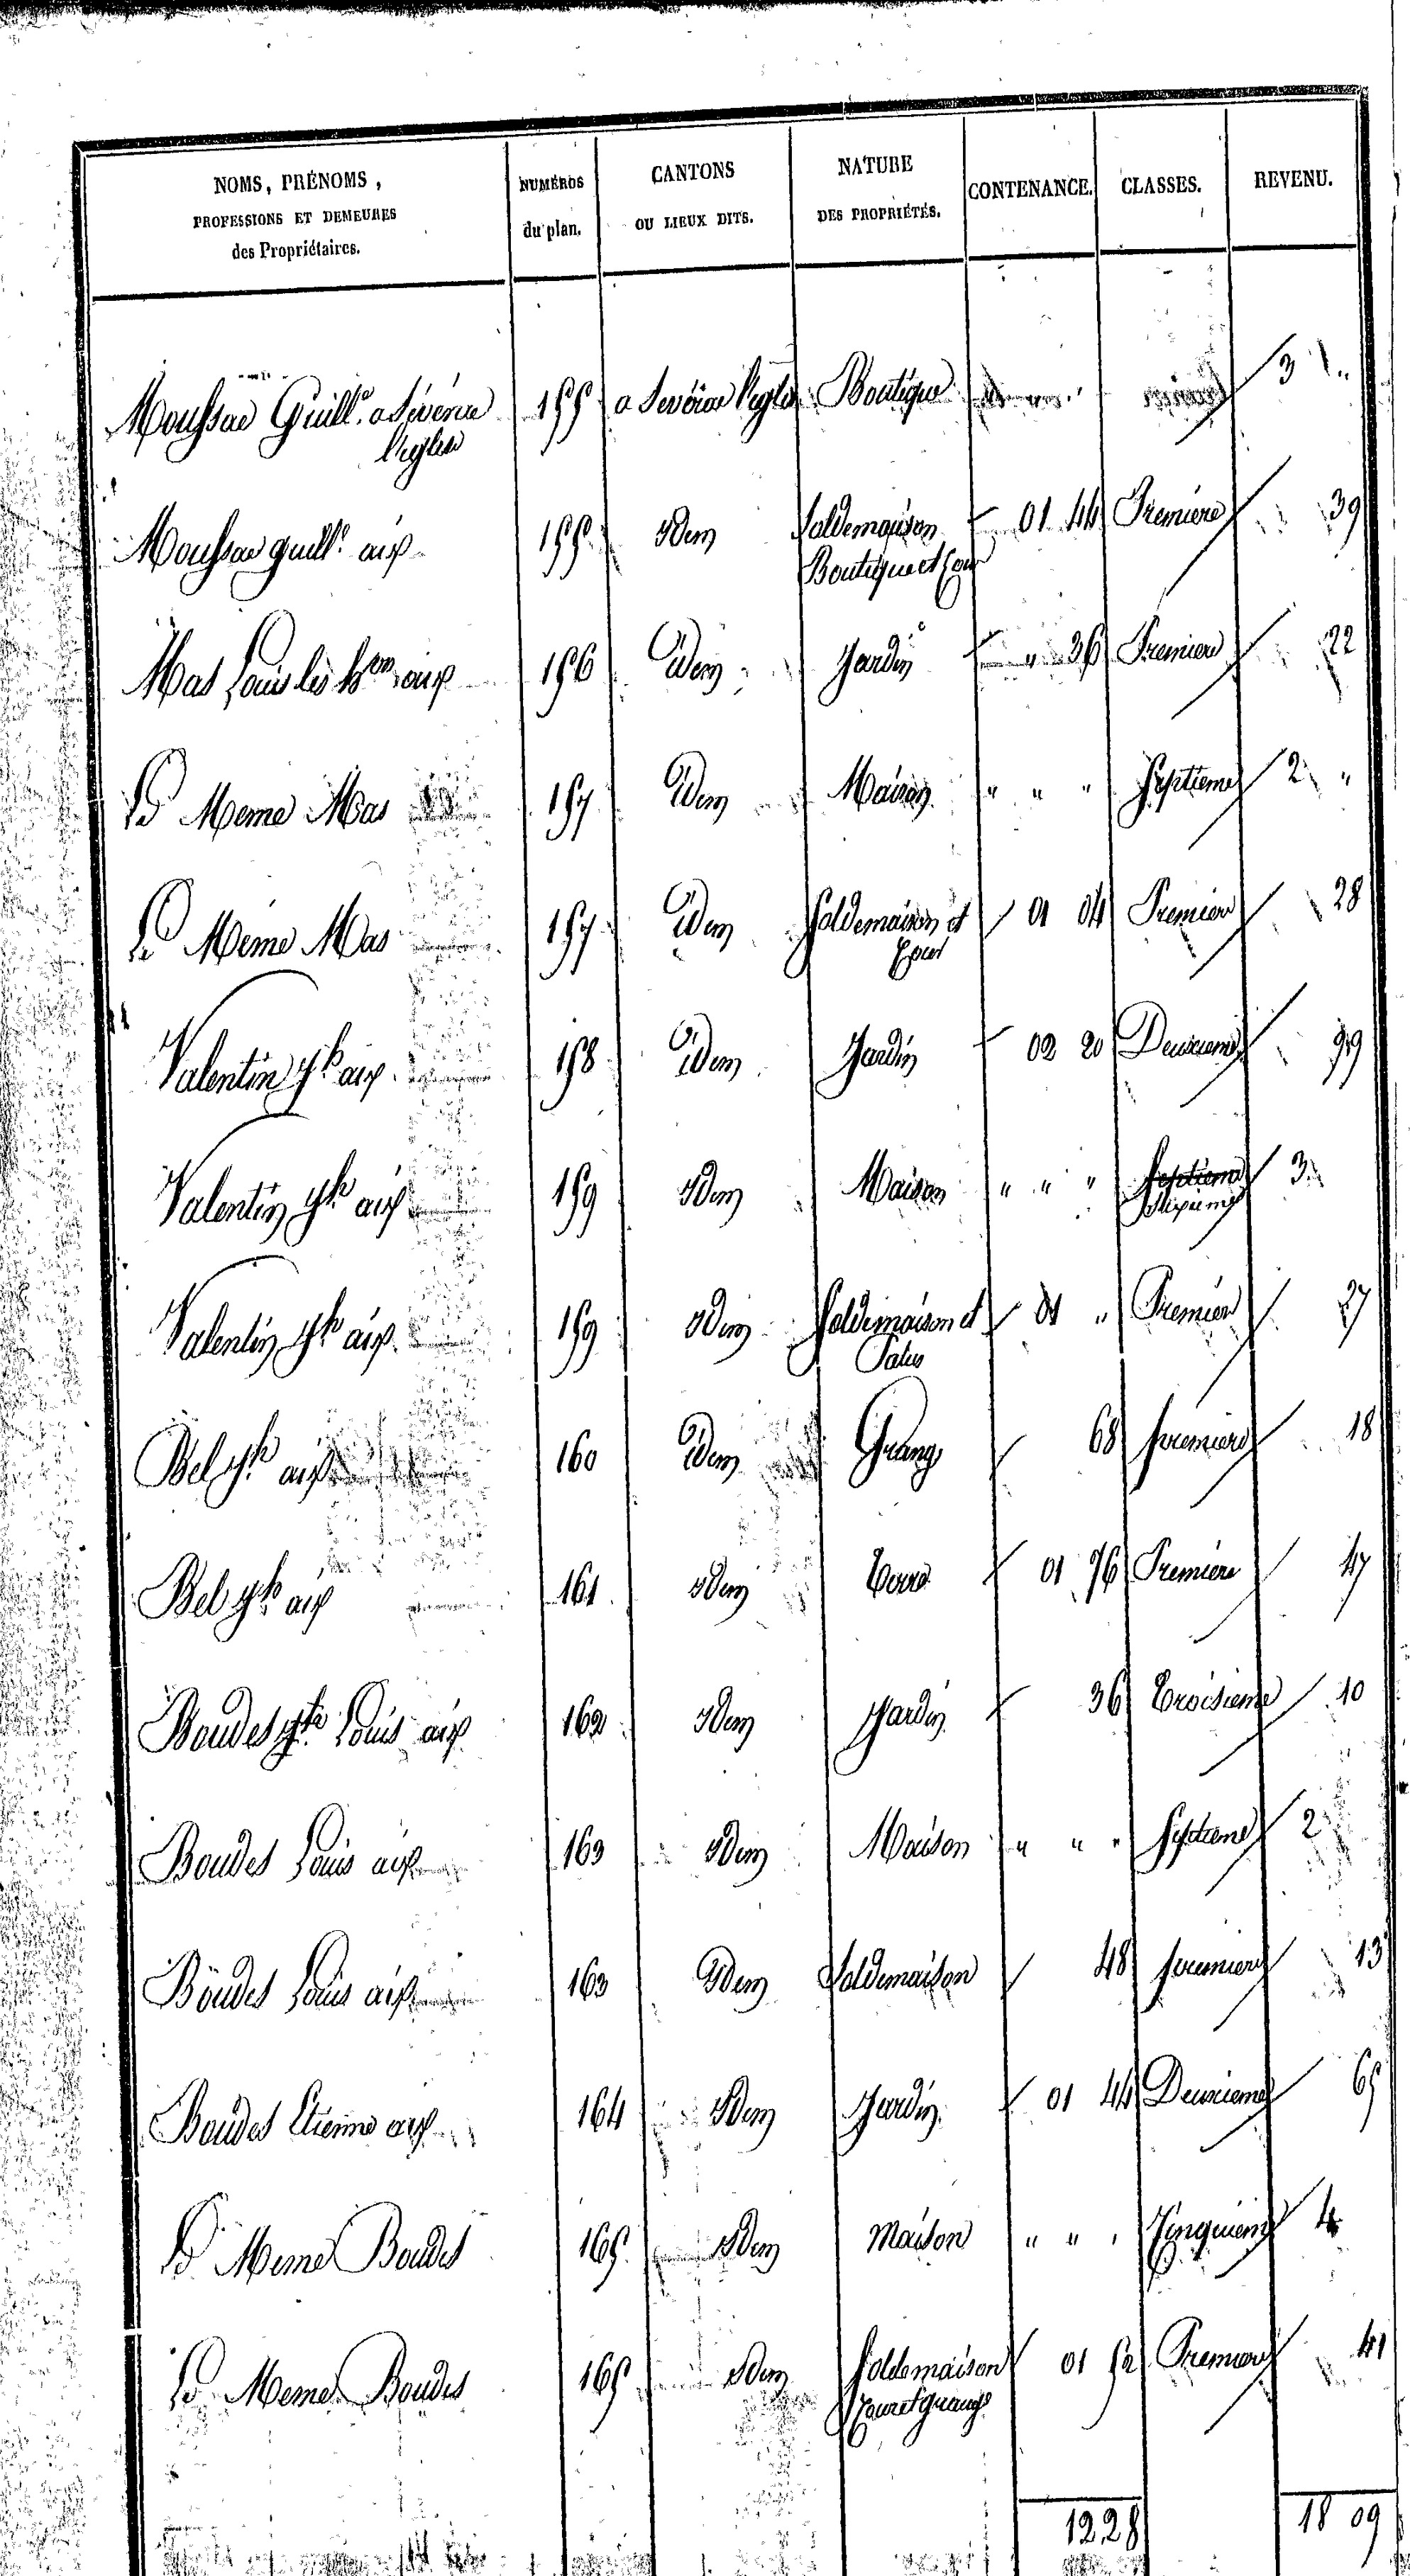 NOMS, PRÉNOMS, PROFESSIONS ET DEMEURES des Propriétaires. NUMÉROS du plan. CANTONS OU LIEUX DITS. NATURE DES PROPRIÉTÉS. CONTENANCE. CLASSES. REVENU.
Moussac Guill.e a Séverac l'eglise 155 a Severac l'eglise Boutique 3 "
Moussac guill.e aux 155 Idem Soldemaison Boutique et Cour 01 44 Premiere 39
Mas Louis les h.ers aux 156 Idem Jardin " 36 Premiere 22
Le Meme Mas 157 Idem Maison " " " Septieme 2 "
Le Meme Mas 157 Idem Soldemaison et Cour 01 04 Premiere 28
Valentin aux 158 Idem Jardin 02 20 Deuxieme 99
Valentin aux 159 Idem Maison " " " Septieme Sixieme 3
Valentin aux 159 Idem Soldemaison et Patus 01 " Premiere 27
Bel aux 160 Idem Grange 68 premiere 18
Bel aux 161 Idem Terre 01 76 Premiere 47
Boudes Louis aux 162 Idem Jardin 36 Troisieme 10
Boudes Louis aux 163 Idem Maison " " " Septieme 2
Boudes Louis aux 163 Idem Soldemaison 48 premiere 13
Boudes Etienne aux 164 Idem Jardin 01 44 Deuxieme 65
Le Meme Boudes 165 Idem Maison " " " Cinquieme 4
Le Meme Boudes 165 Idem Soldemaison Cour et grange 01 52 Premiere 41
12 28 18 09